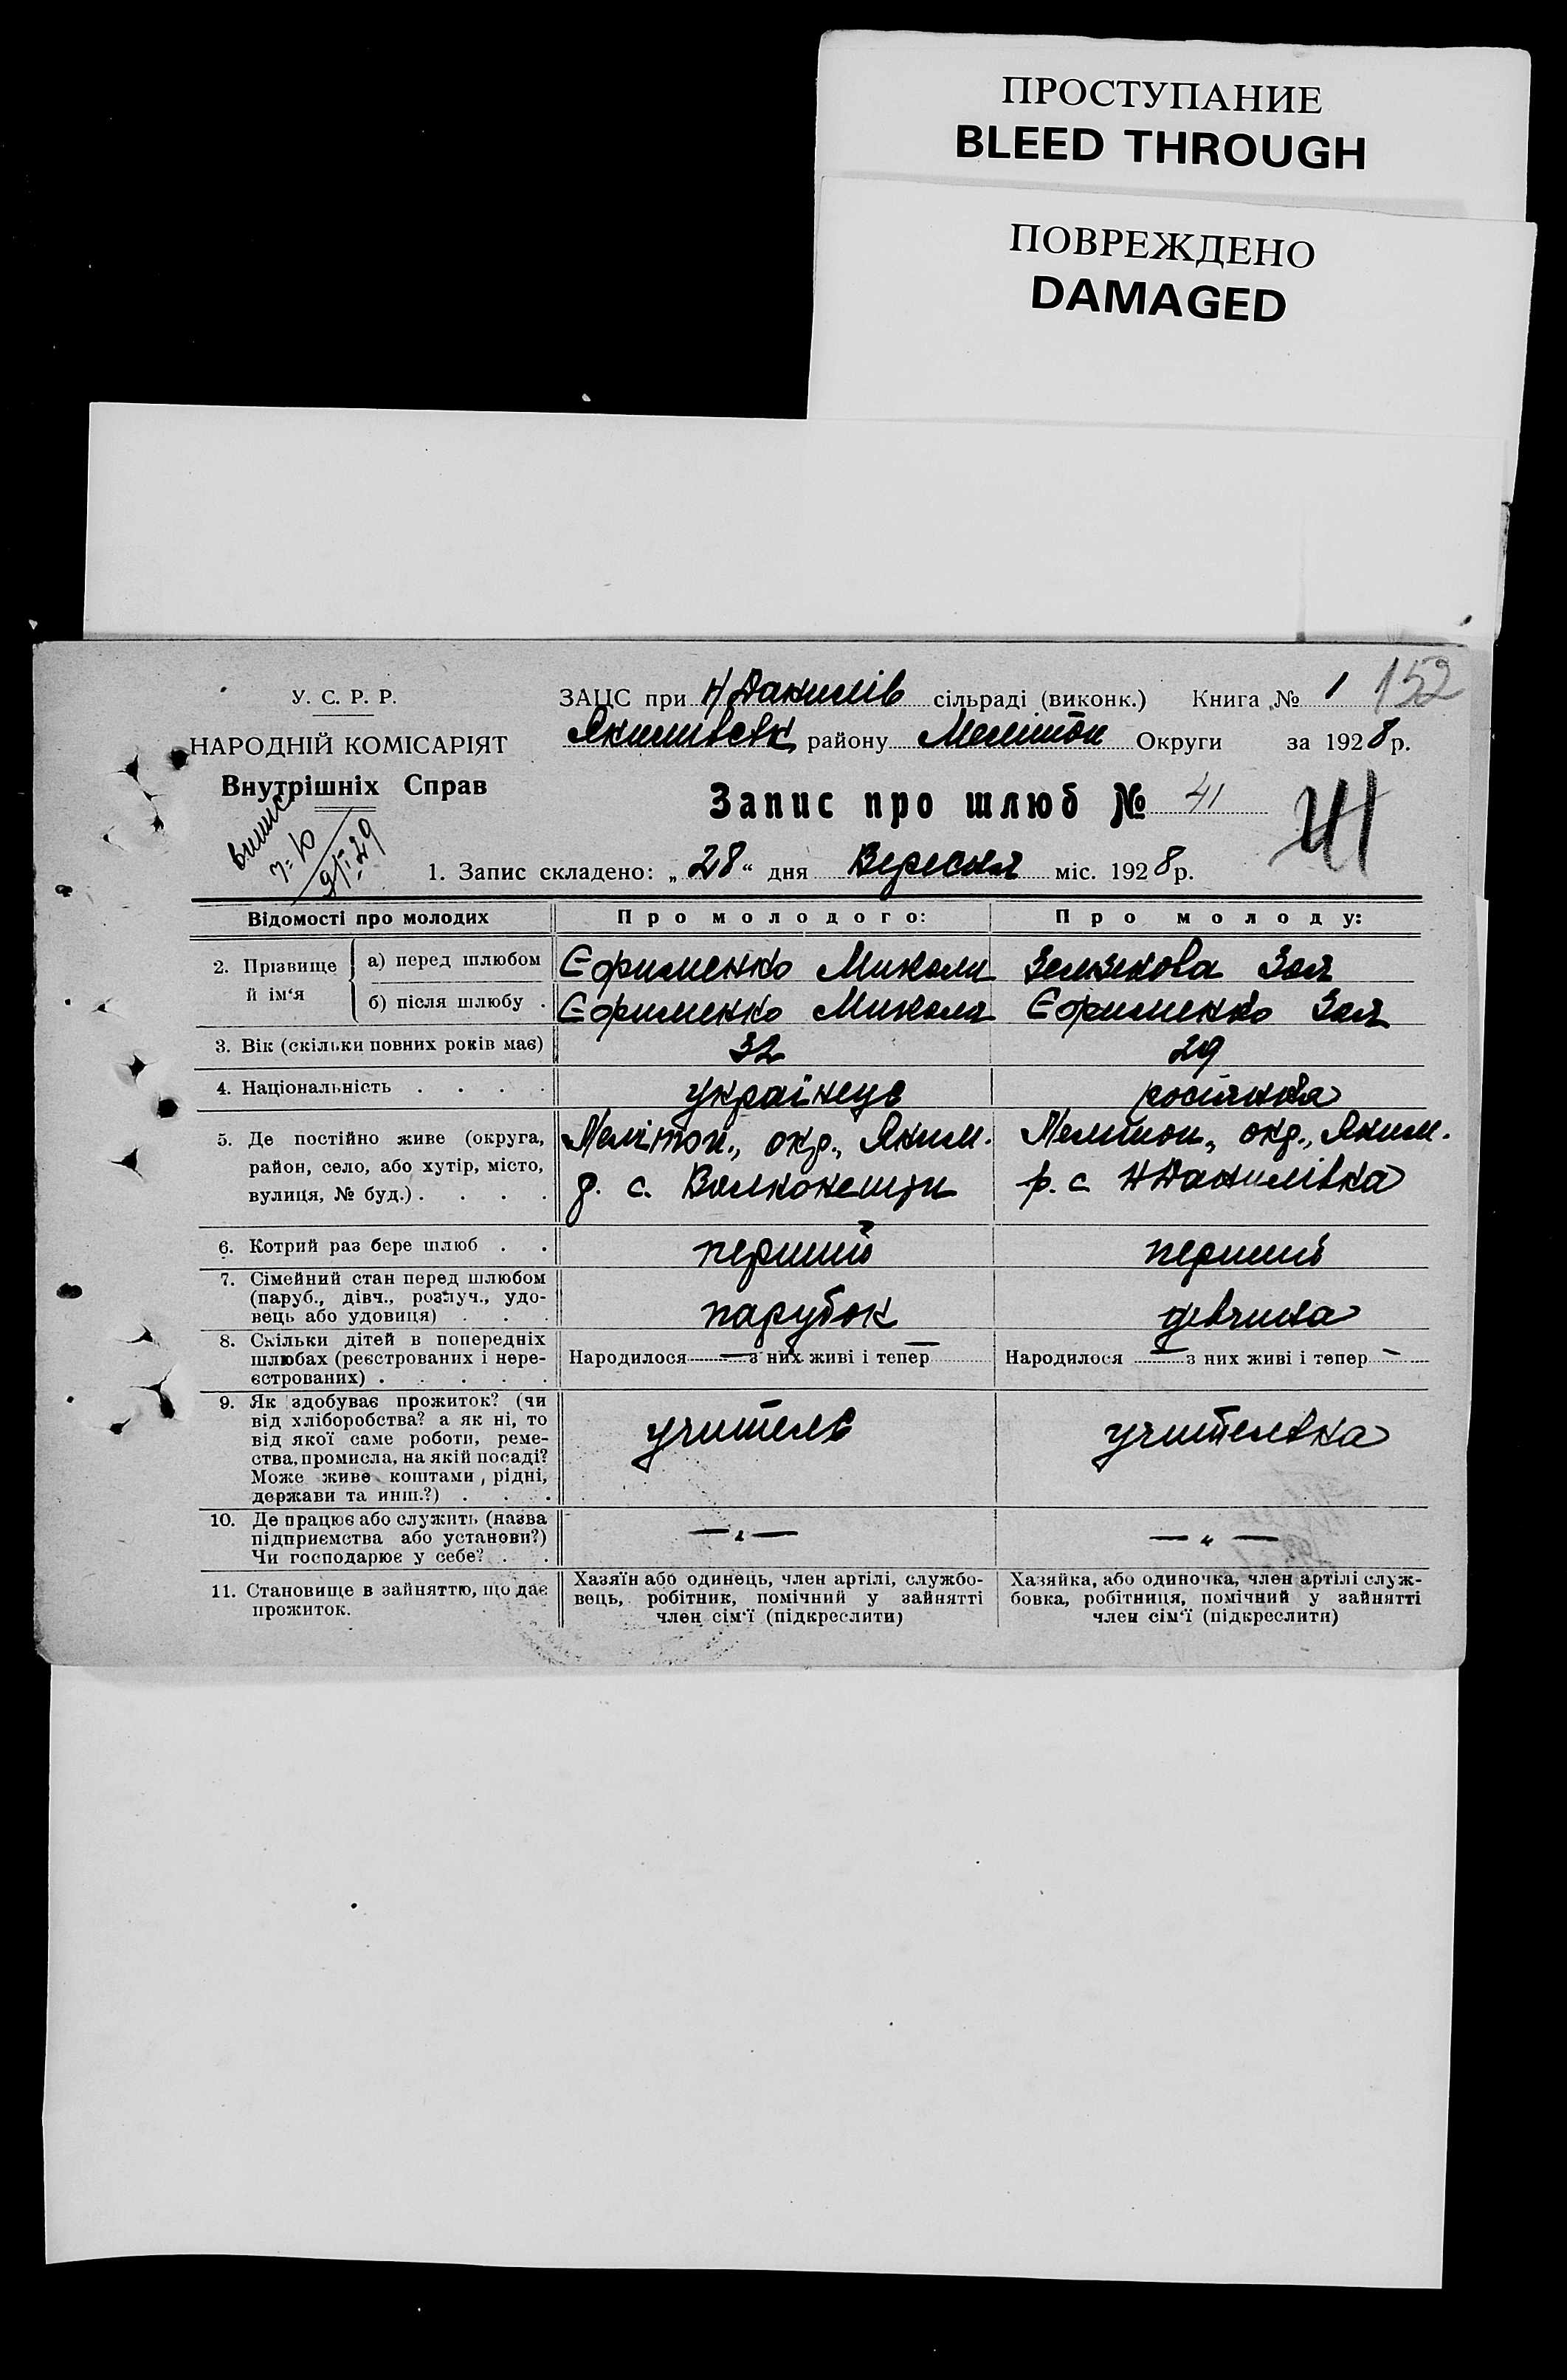 ПРОСТУПАНИЕ
BLEED THROUGH
ПОВРЕЖДЕНО
DAMAGED
152
У. С. Р. Р.
НАРОДНІЙ КОМІСАРІЯТ
Внутрішніх Справ
ЗАЦС при Н Данилів сільраді (виконк.) Книга № 1
Якимівськ району Мелітоп Округи за 1928 р.
Запис про шлюб № 41
41
1. Запис складено: „28“ дня Вересня міс. 1928 р.
Відомості про молодих Про молодого: Про молоду:
2. Прізвище й ім‘я
а) перед шлюбом Єфименко Микола Зоя
б) після шлюбу . Єфименко Микола Єфименко Зоя
3. Вік (скільки повних років має) 32 29
4. Національність . . . . українець росіянка
5. Де постійно живе (округа,
район, село, або хутір, місто,
вулиця, № буд.) . . . .
Мелітоп., окр., Яким.
р. с.
Мелітоп., окр., Яким.
р. с. Н Данилівка
6. Котрий раз бере шлюб . . перший перший
7. Сімейний стан перед шлюбом
(паруб., дівч., розлуч., удо-
вець або удовиця) . . .
парубок девчина
8. Скільки дітей в попередніх
шлюбах (реєстрованих і нере-
єстрованих) . . . . .
Народилося — з них живі і тепер —
Народилося — з них живі і тепер —
9. Як здобуває прожиток? (чи
від хліборобства? а як ні, то
від якої саме роботи, реме-
ства, промисла, на якій посаді?
Може живе коштами, рідні,
держави та инш.?) . . .
учитель учителька
10. Де працює або служить (назва
підприємства або установи?)
Чи господарює у себе? . .
— „ — — „ —
11. Становище в зайняттю, що дає
прожиток.
Хазяїн або одинець, член артілі, службо-
вець, робітник, помічний у зайнятті
член сім‘ї (підкреслити)
Хазяйка, або одиночка, член артілі служ-
бовка, робітниця, помічний у зайнятті
член сім‘ї (підкреслити)